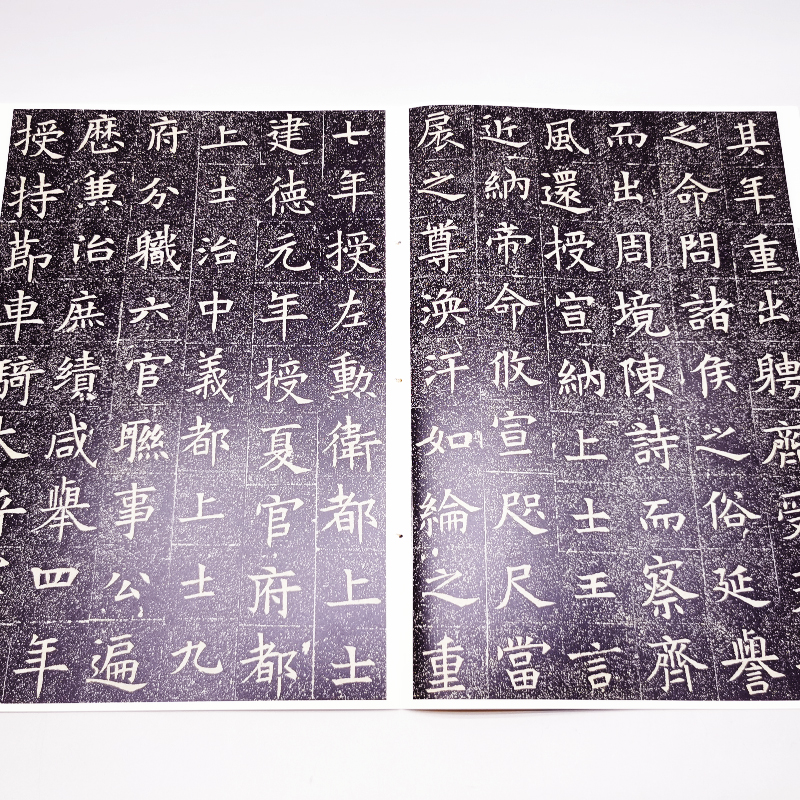 其年重出聘齊受
之命問諸侯之俗延譽
而出周境陳詩而察齊
風還授宣納上士王言
近納帝命攸宣咫尺當
扆之尊渙汗如綸之重
七年授左勳衛都上士
建德元年授夏官府都
上士治中義都上士九
府分職六官聯事公遍
厯兼治庶績咸舉四年
授持莭車騎大